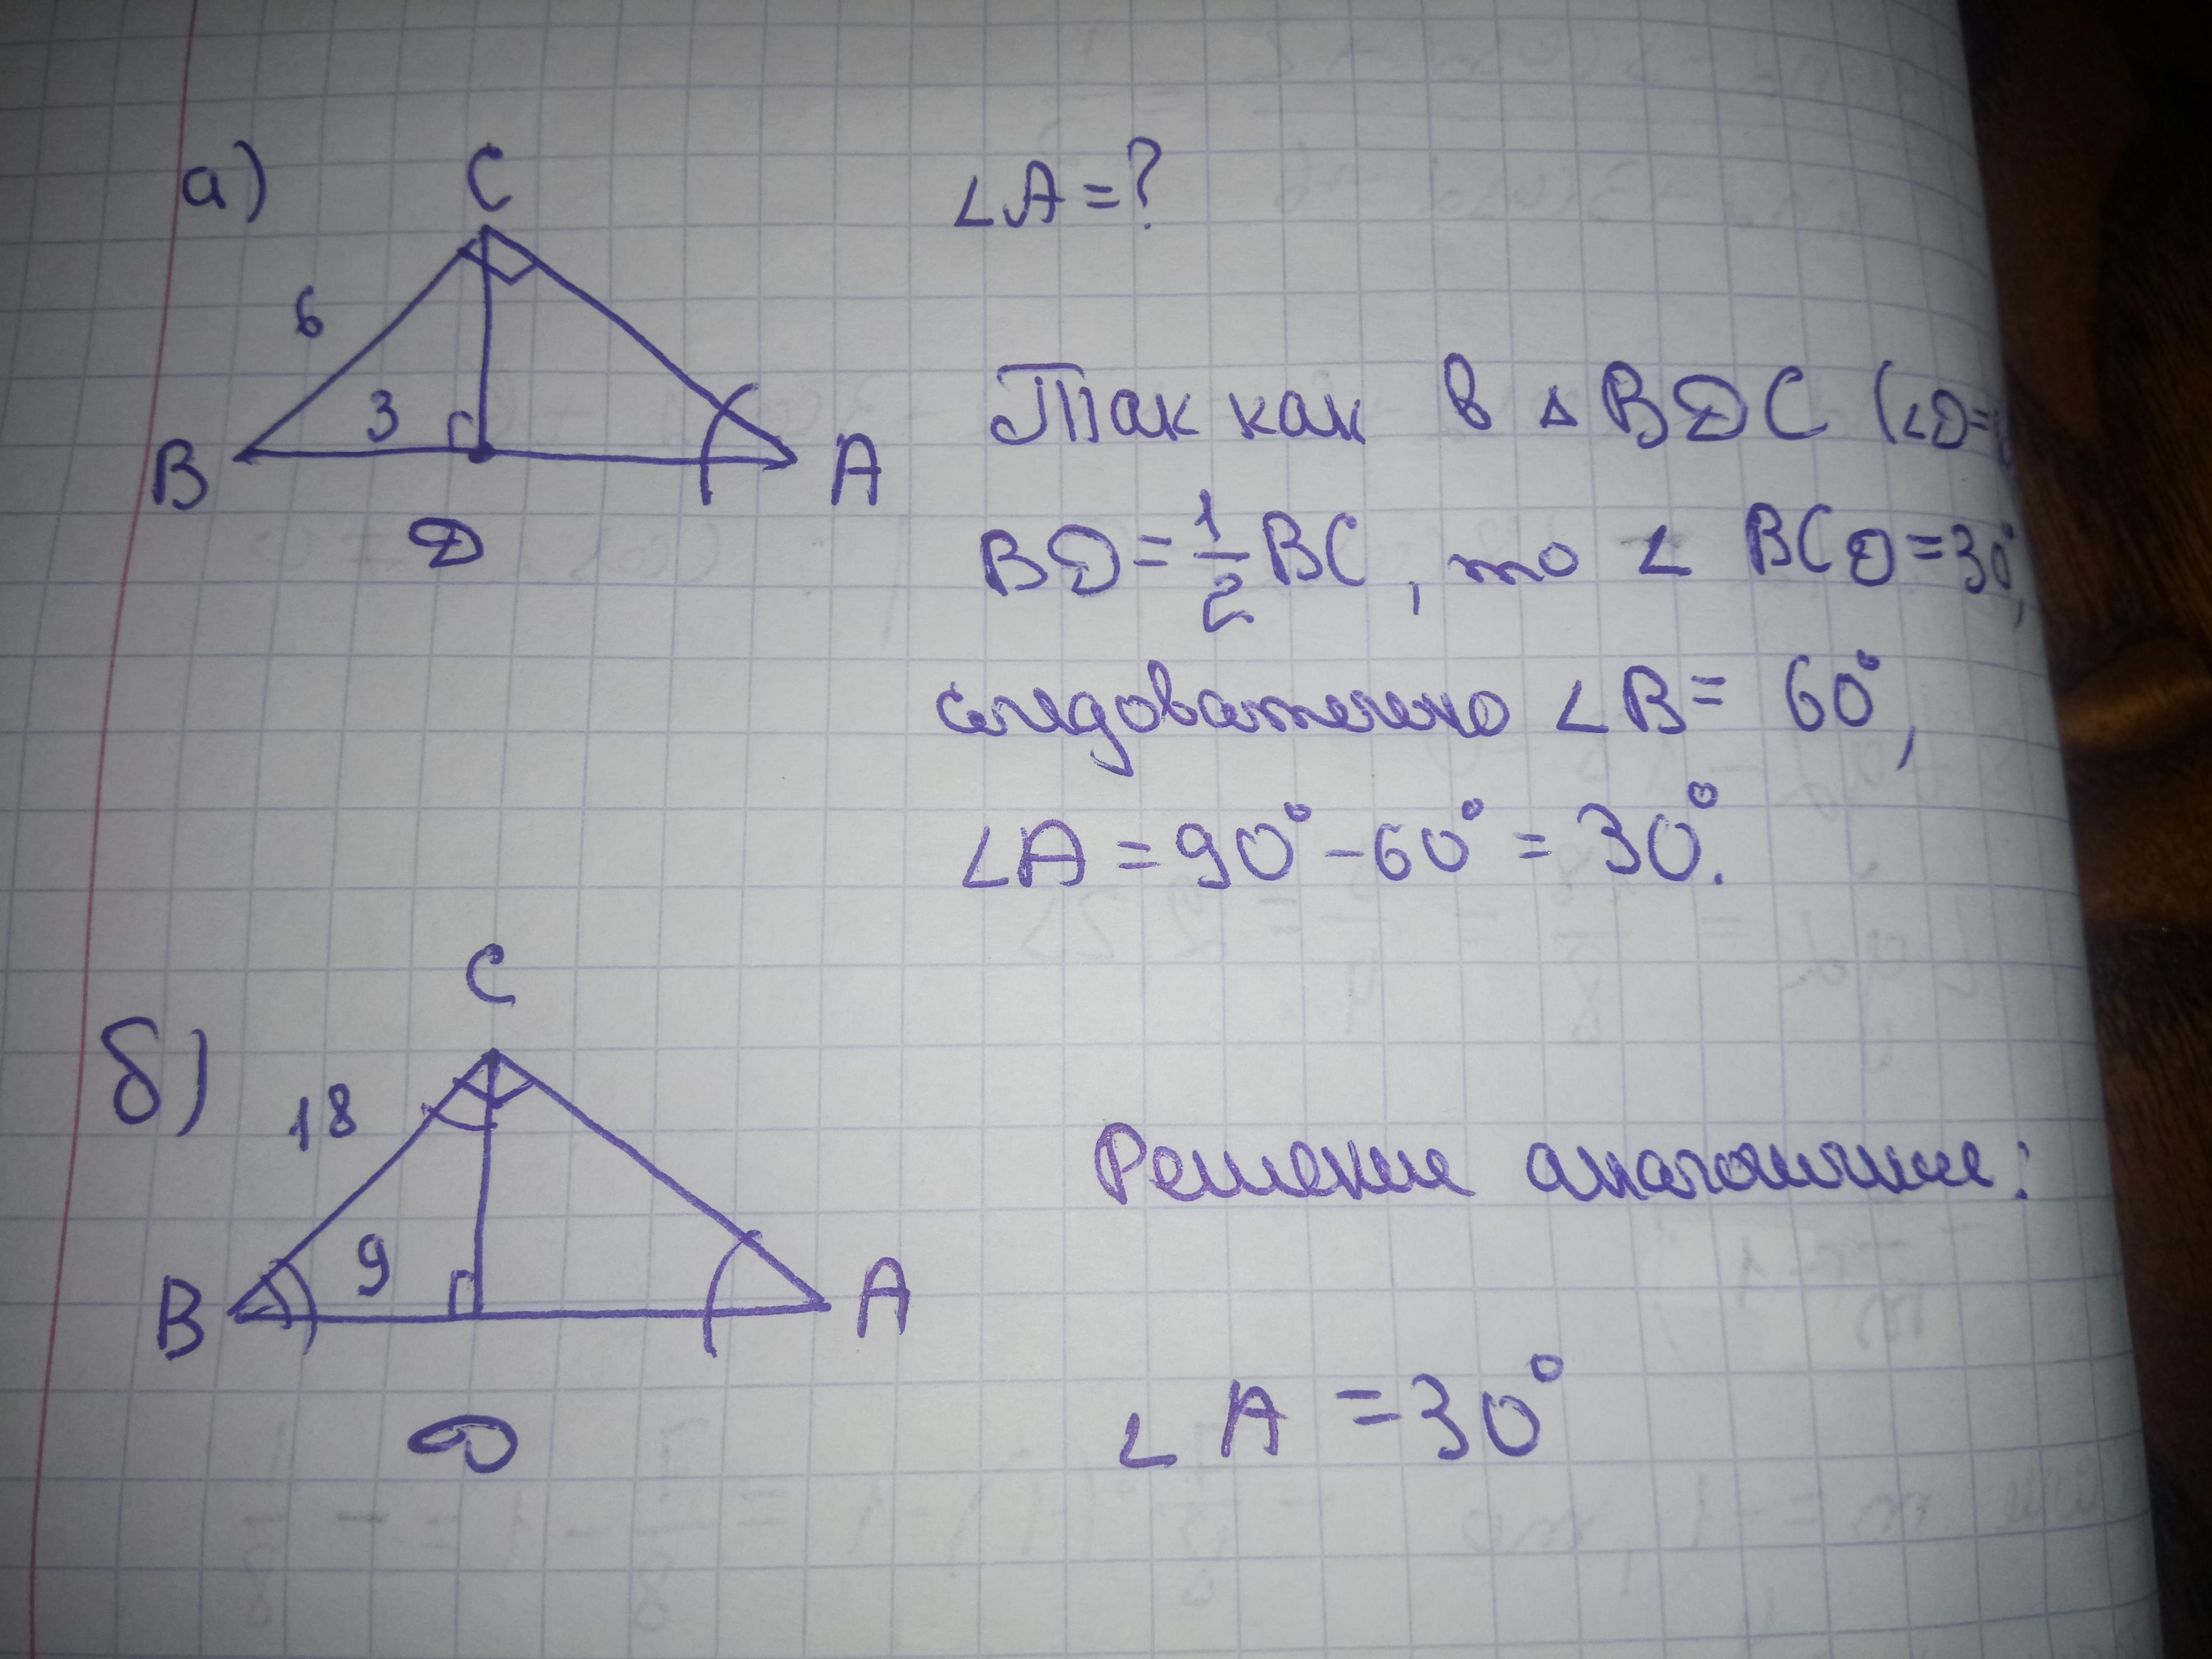 а)
C
6
3
B
A
D
∠A=?
Так как в △BDC (∠D=
BD=1/2 BC, то ∠ BCD=30°,
следовательно ∠B= 60°,
∠A=90°-60°=30°.
б)
C
18
9
B
A
D
Решение аналогичное:
∠A=30°